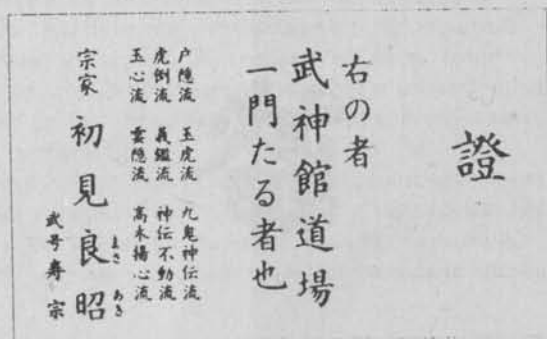 證
右の者
武神館道場
一門たる者也
戸隠流 玉虎流 九鬼神伝流
虎倒流 義鑑流 神伝不動流
玉心流 雲隠流 高木揚心流
宗家 初見良昭
まさ あき
武号 寿宗